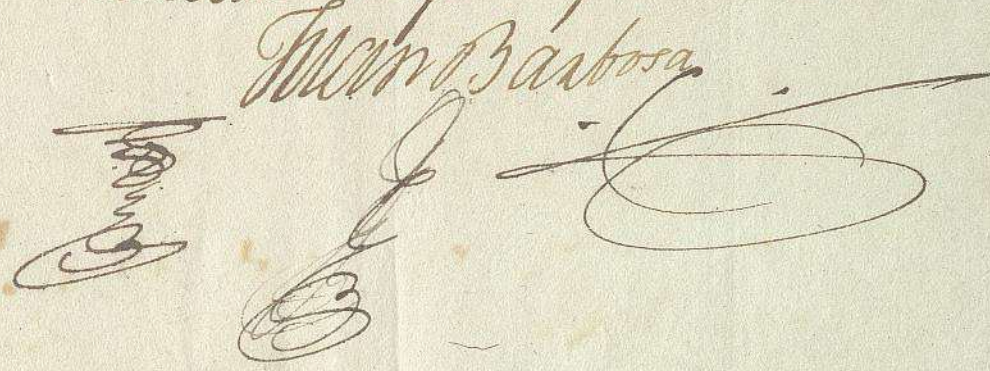 Juan Barbosa